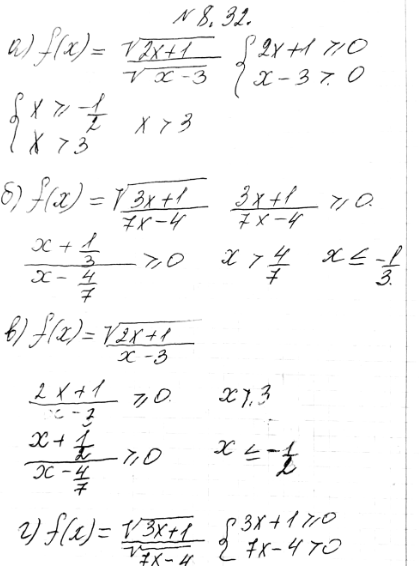 № 8.32.
а) f(x) = √(2x+1)/√(x-3) { 2x+1 ≥ 0
x-3 > 0
{ x ≥ -1/2
x > 3 x > 3
б) f(x) = √(3x+1)/(7x-4) (3x+1)/(7x-4) ≥ 0.
(x + 1/3)/(x - 4/7) ≥ 0 x > 4/7 x ≤ -1/3.
в) f(x) = √(2x+1)/(x-3)
(2x+1)/(x-3) ≥ 0. x > 3
(x + 1/2)/(x - 4/7) ≥ 0 x ≤ -1/2
г) f(x) = √(3x+1)/√(7x-4) { 3x+1 ≥ 0
7x-4 > 0